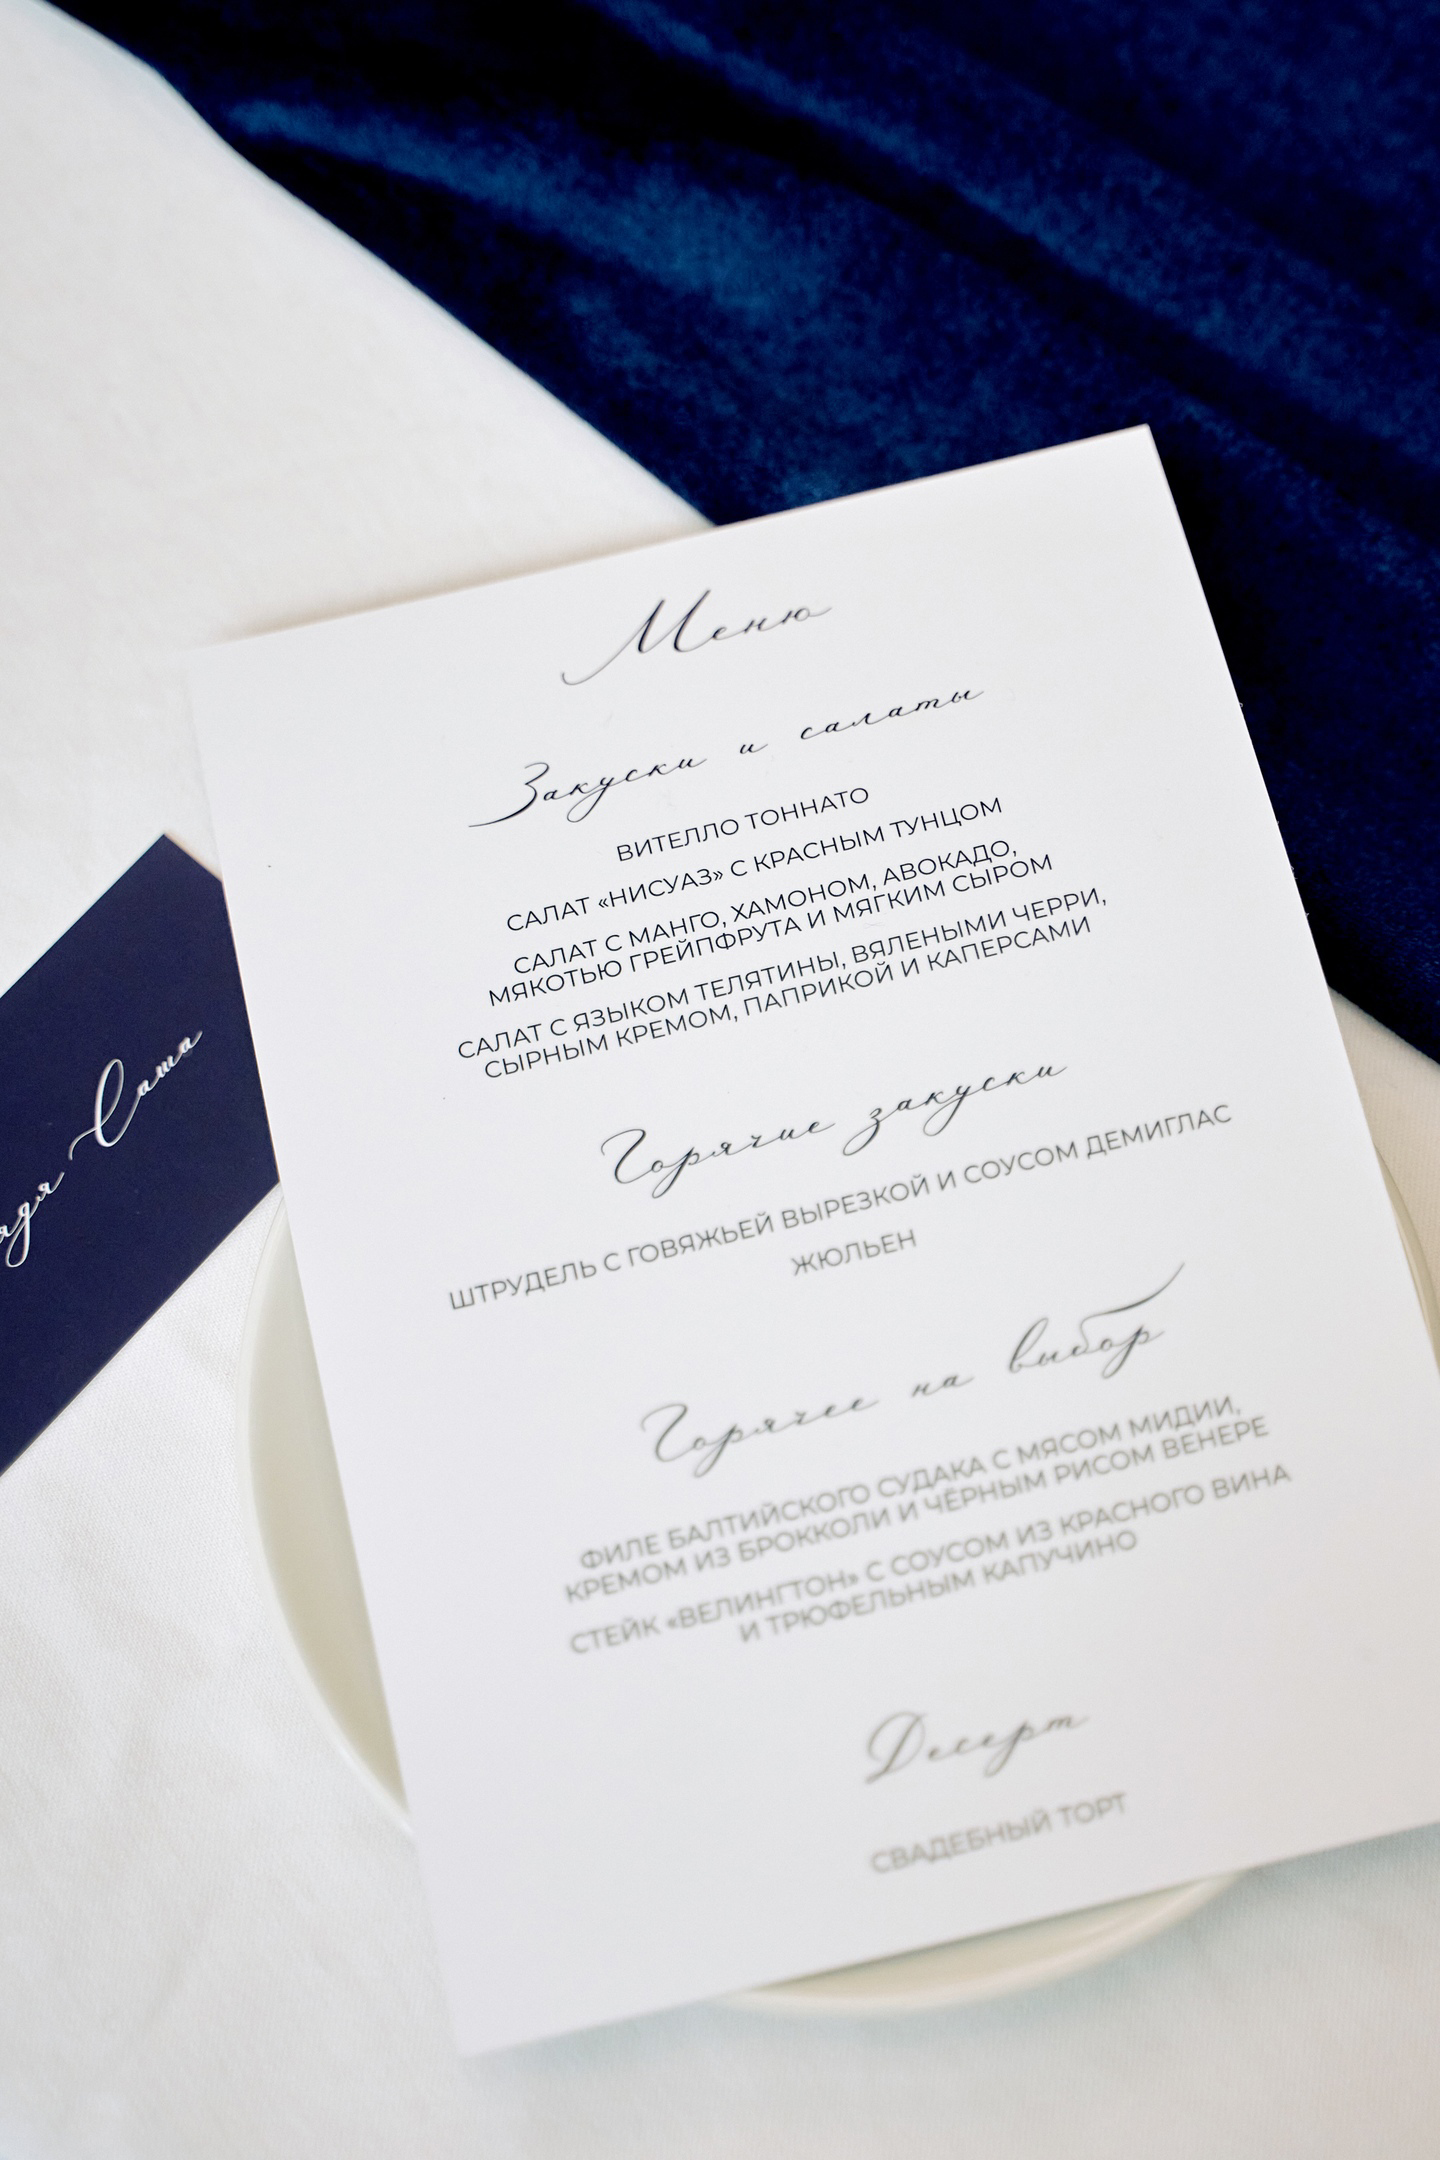 Меню
Закуски и салаты
ВИТЕЛЛО ТОННАТО
САЛАТ «НИСУАЗ» С КРАСНЫМ ТУНЦОМ
САЛАТ С МАНГО, ХАМОНОМ, АВОКАДО,
МЯКОТЬЮ ГРЕЙПФРУТА И МЯГКИМ СЫРОМ
САЛАТ С ЯЗЫКОМ ТЕЛЯТИНЫ, ВЯЛЕНЫМИ ЧЕРРИ,
СЫРНЫМ КРЕМОМ, ПАПРИКОЙ И КАПЕРСАМИ
Горячие закуски
ШТРУДЕЛЬ С ГОВЯЖЬЕЙ ВЫРЕЗКОЙ И СОУСОМ ДЕМИГЛАС
ЖЮЛЬЕН
Горячее на выбор
ФИЛЕ БАЛТИЙСКОГО СУДАКА С МЯСОМ МИДИИ,
КРЕМОМ ИЗ БРОККОЛИ И ЧЁРНЫМ РИСОМ ВЕНЕРЕ
СТЕЙК «ВЕЛИНГТОН» С СОУСОМ ИЗ КРАСНОГО ВИНА
И ТРЮФЕЛЬНЫМ КАПУЧИНО
Десерт
СВАДЕБНЫЙ ТОРТ
Саша